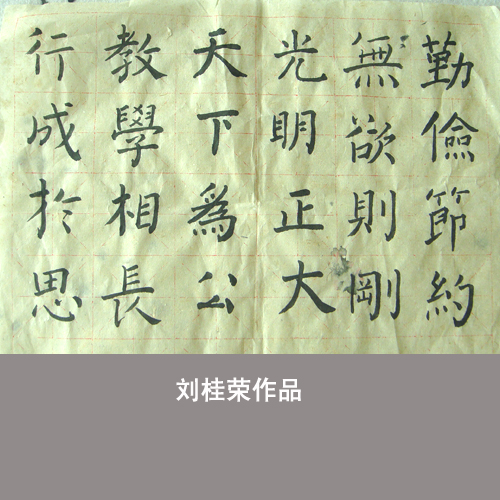 勤儉節約
無欲則剛
光明正大
天下為公
教學相長
行成於思
刘桂荣作品